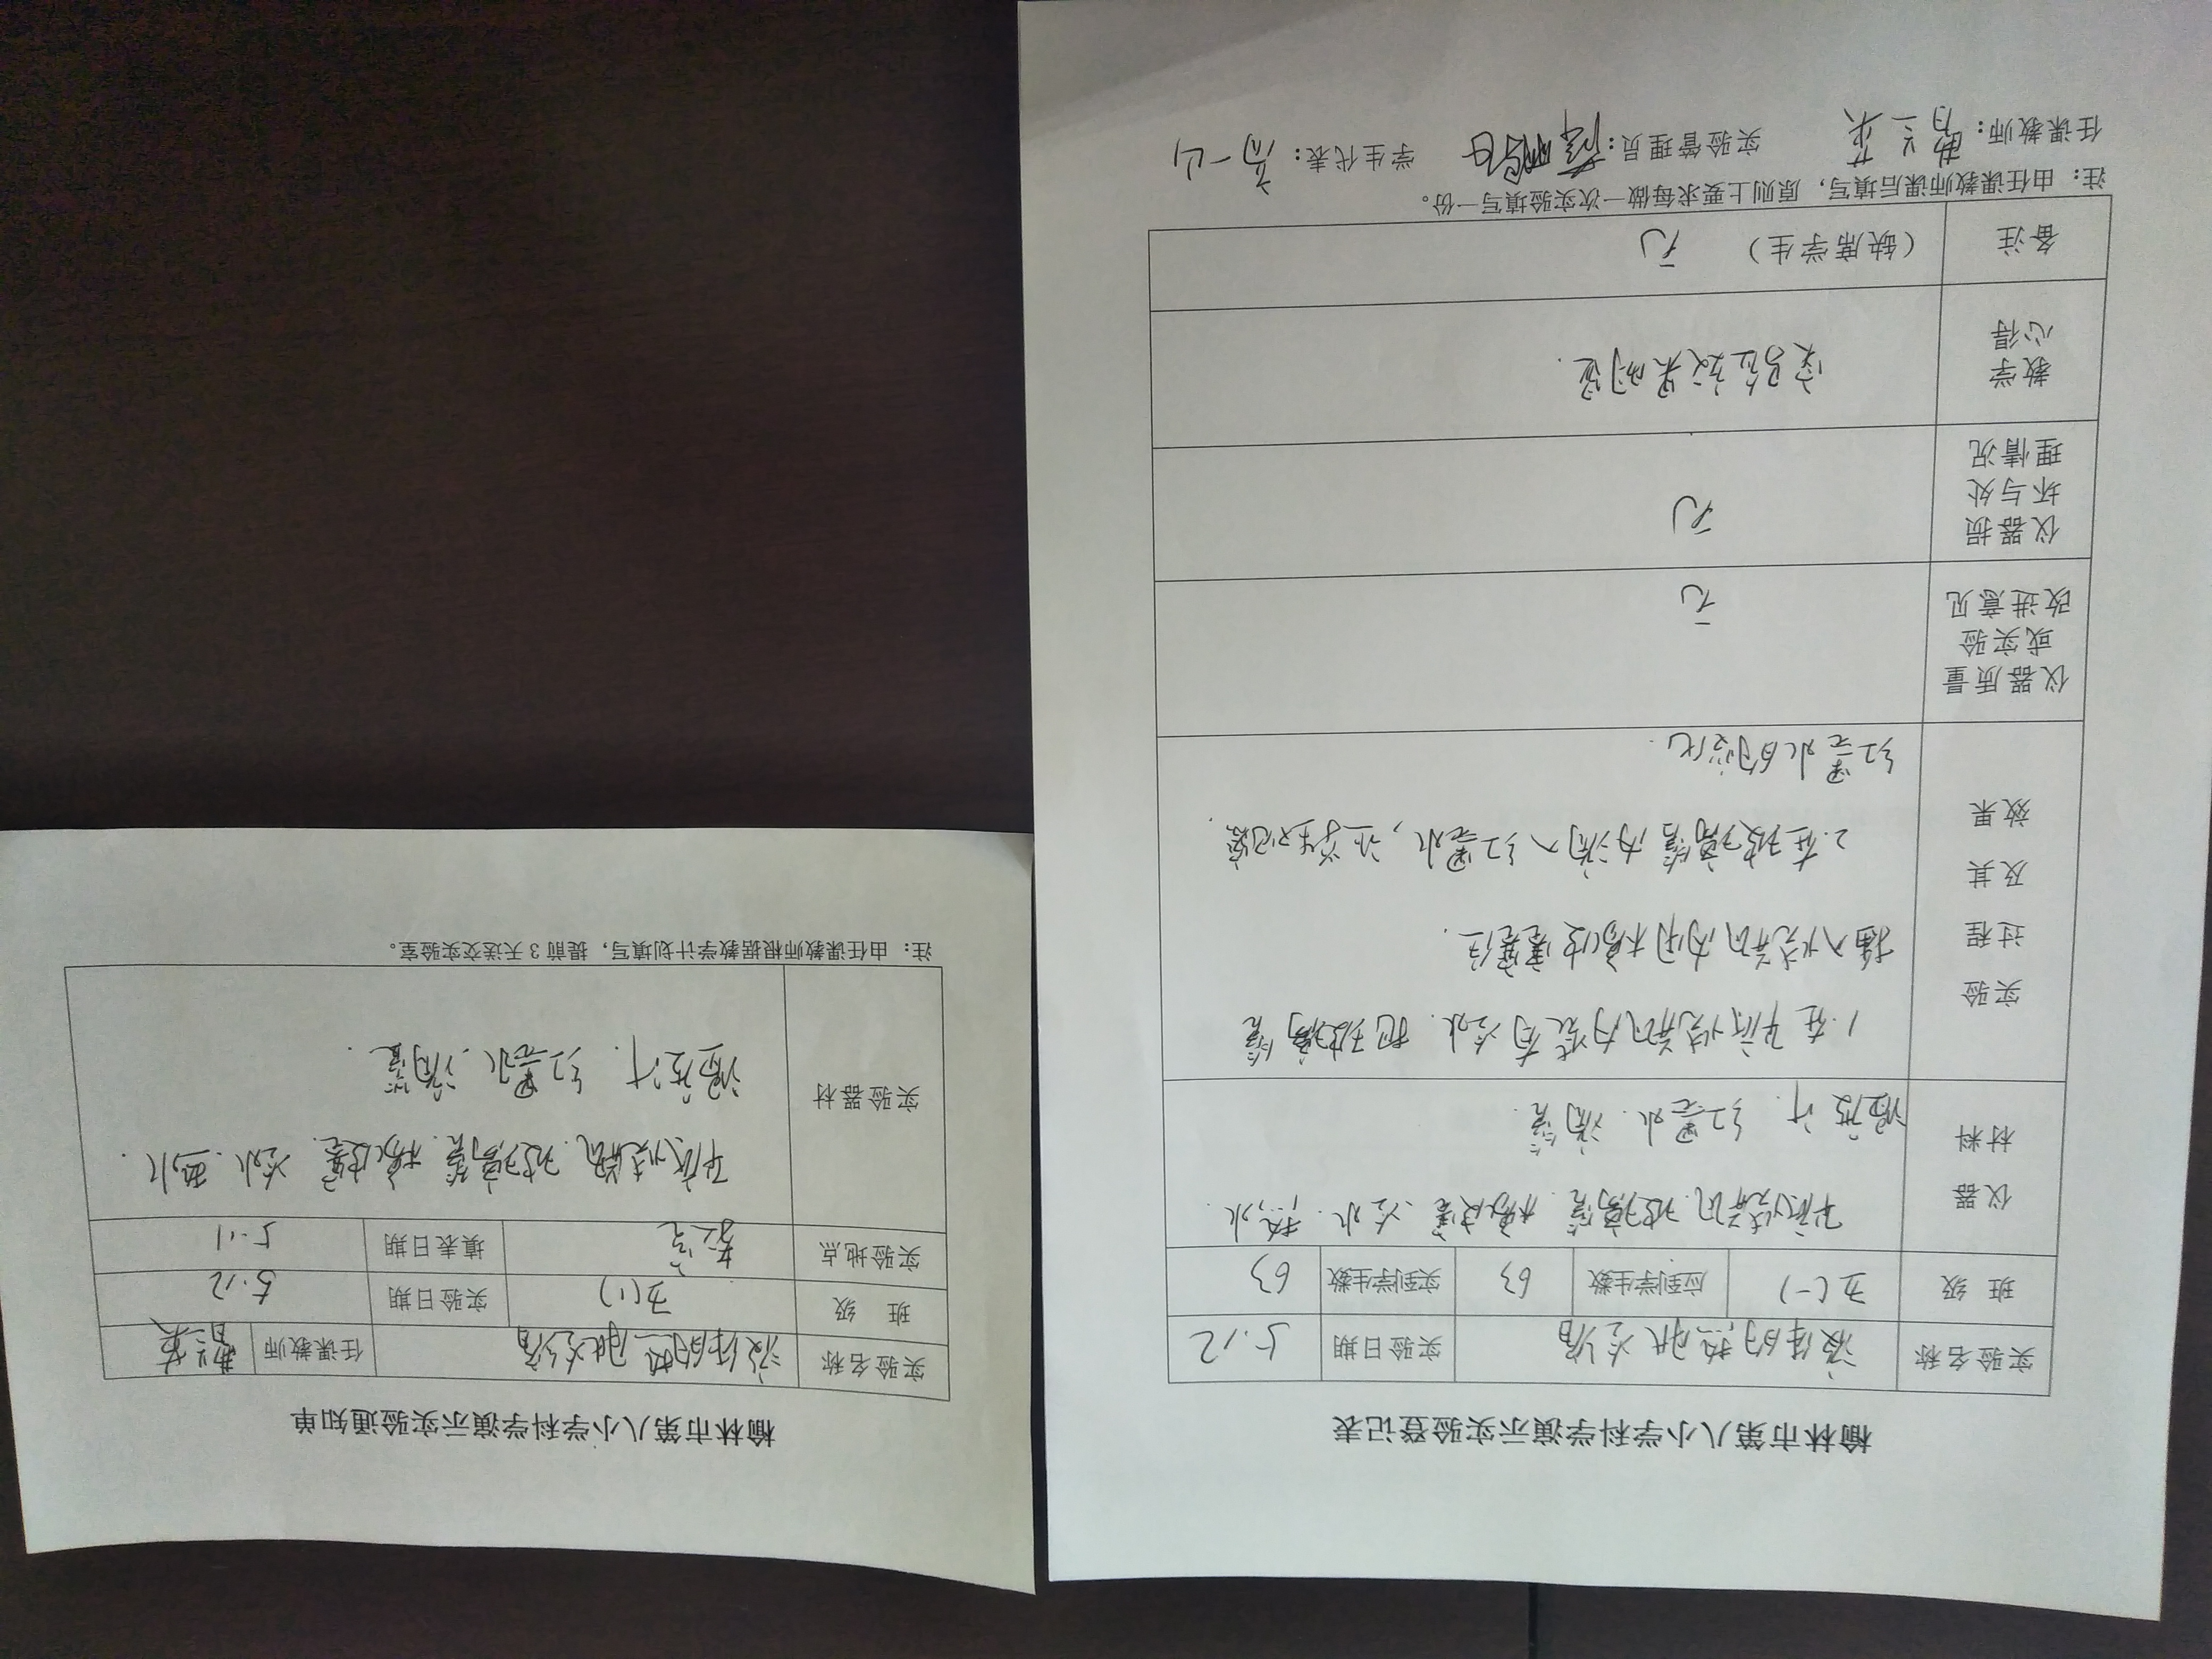 榆林市第八小学科学演示实验登记表
实验名称 液体的热胀冷缩 实验日期 5.12
班 级 五(一) 应到学生数 63 实到学生数 63
仪器
材料
平底烧瓶.玻璃管.橡皮塞.冷水.热水
温度计.红墨水.滴管
实验
过程
及其
效果
1.在平底烧瓶内装有冷水.把玻璃管
插入烧瓶内用橡皮塞塞住.
2.在玻璃管内滴入红墨水,让学生观察
红墨水的变化.
仪器质量
或实验
改进意见
无
仪器损
坏与处
理情况
无
教学
心得
实验效果明显.
备注 (缺席学生) 无
注：由任课教师课后填写，原则上要求每做一次实验填写一份。
任课教师： 实验管理员： 学生代表：高一山
榆林市第八小学科学演示实验通知单
实验名称 液体的热胀冷缩 任课教师
班 级 五(1) 实验日期 5.12
实验地点 教室 填表日期 5.11
实验器材
平底烧瓶.玻璃管.橡皮塞.冷水.热水.
温度计.红墨水.滴管.
注：由任课教师根据教学计划填写，提前 3 天送交实验室。